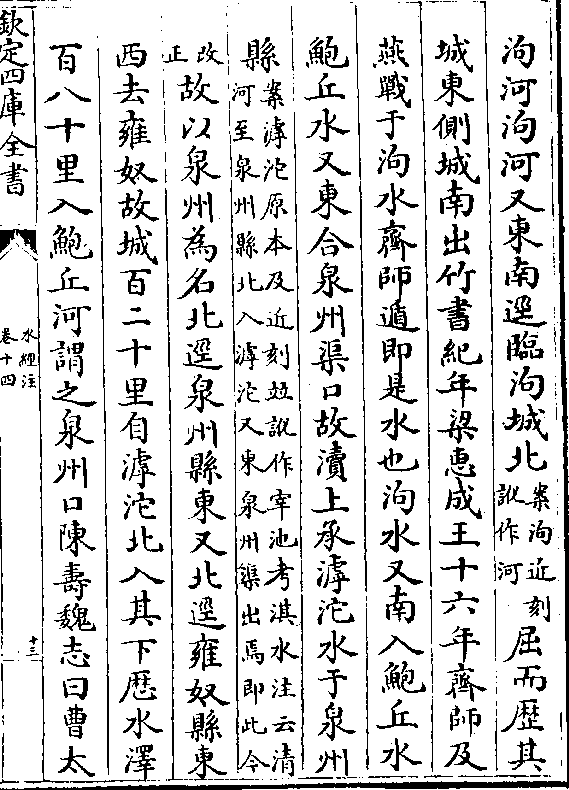 泃河泃河又東南逕臨泃城北案泃近刻訛作河屈而歴其
城東側城南出竹書紀年梁惠成王十六年齊師及
燕戰于泃水齊師遁即是水也泃水又南入鮑丘水
鮑丘水又東合泉州渠口故瀆上承滹沱水于泉州
縣案滹沱原本及近刻竝訛作宰池考淇水注云清河至泉州縣北入滹沱又東泉州渠出焉即此今
改正故以泉州為名北逕泉州縣東又北逕雍奴縣東
西去雍奴故城百二十里自滹沱北入其下厯水澤
百八十里入鮑丘河謂之泉州口陳壽魏志曰曹太
欽定四庫全書
水經注
卷十四
十三